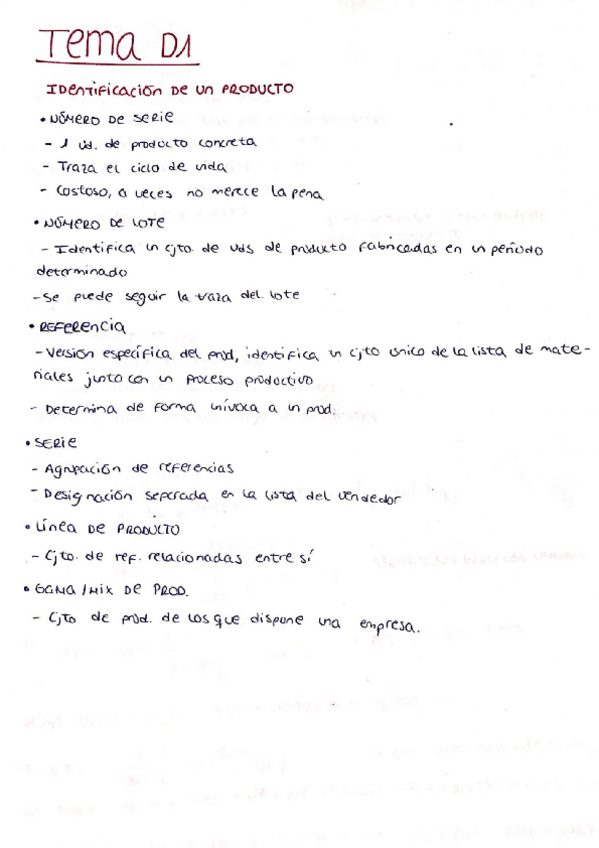 Tema D1
IDENTIFICACIÓN DE UN PRODUCTO
• NÚMERO DE SERIE
- 1 ud. de producto concreta
- Traza el ciclo de vida
- Costoso, a veces no merece la pena
• NÚMERO DE LOTE
- Identifica un cjto. de uds de producto fabricadas en un período
determinado
- Se puede seguir la traza del lote
• REFERENCIA
- Versión específica del prod, identifica un cjto único de la lista de mate-
riales junto con un proceso productivo
- Determina de forma unívoca a un prod.
• SERIE
- Agrupación de referencias
- Designación separada en la lista del vendedor
• Línea DE PRODUCTO
- Cjto. de ref. relacionadas entre sí
• GAMA / MIX DE PROD.
- Cjto de prod. de los que dispone una empresa.